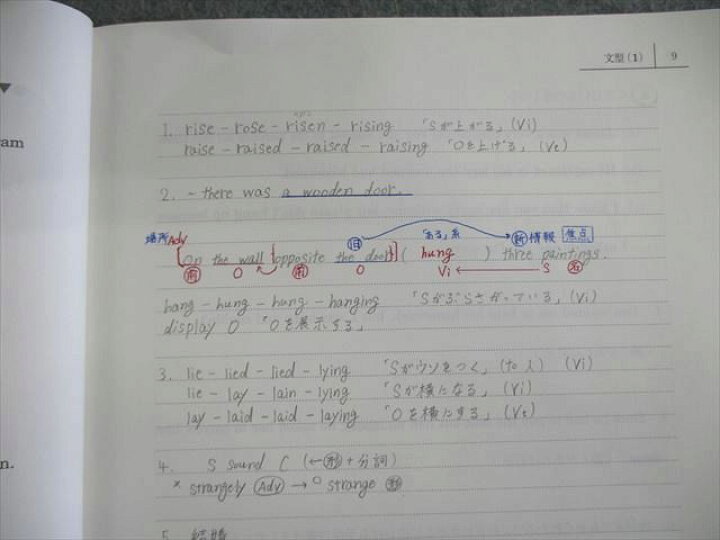 文型(1) 9
am
1. rise - rose - risen - rising 「Sが上がる」(Vi)
raise - raised - raised - raising 「Oを上げる」(Vt)
2. - there was a wooden door.
場所Adv 旧 「ある」系 新 情報 焦点
On the wall opposite the door ( hung ) three paintings.
前 O 前 O Vi S 名
hang - hung - hung - hanging 「Sがぶらさがっている」(Vi)
display O 「Oを展示する」
3. lie - lied - lied - lying 「Sがウソをつく」(to 人) (Vi)
lie - lay - lain - lying 「Sが横になる」(Vi)
lay - laid - laid - laying 「Oを横にする」(Vt)
n.
4. S sound C (←形+分詞)
× strangely Adv → ○ strange 形
5. 結婚